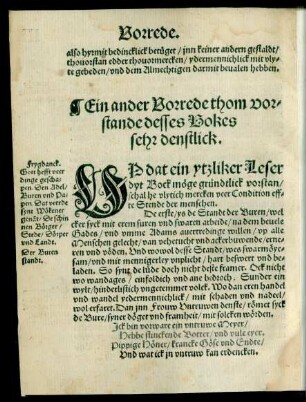 Vorrede.
also hyrmit bedincklick betüget / jnn keiner andern gestaldt /
thouorstan edder thouotmercken / ydermennichlick mit vly-
te gebeden / vnd dem Almechtigen darmit beualen hebben.
¶ Ein ander Vorrede thom vor-
stande desses Bokes
sehr denstlick.
Fryghanck.
Gott hefft veer
dinge gescha-
pen. Den Adel /
Buren vnd Pa-
pen. Dat veerde
syne Wökener
Börger /
vnd Landt.
Der Buren
standt.
dat ein ytzliker Leser
dyt Boek möge gründtlick vorstan /
schal he vlytich mercken veer Condition effte
Stende der menschen.
De erste / ys de Stande der Buren / wel-
cker syck mit erem suren vnd swaren arbede / na dem beuele
Gades / vnd vmme Adams auertredinge willen / vp alle
Menschen gelecht / van vehetucht vnd ackerbuwende / erne-
ren vnd vöden. Vnd wowol desse Stande / wo
vnd mit mennigerley vnplicht / hart beswert vnd be-
laden. So synt de lüde doch nicht desse framer. Ock nicht
wo wandages / einfoldich vnd ane bedroch. Sunder ein
wylt / hinderlistich vngetemmet volck. Wo dan eren handel
vnd wandel ydermennichlick / mit schaden und nadeel /
wol erfaret. Dan jnn Frouw Vntruwen denste / römet syck
de Bure / syner döget vnd framheit / mit solcken wörden.
Ick bin vorware ein vntruwe Meyer /
Hebbe stinckende Botter / vnd vule eyer.
Pippige Höner / krancke Göse vnd Endte /
Vnd wat ick yn vntruw kan erdencken.